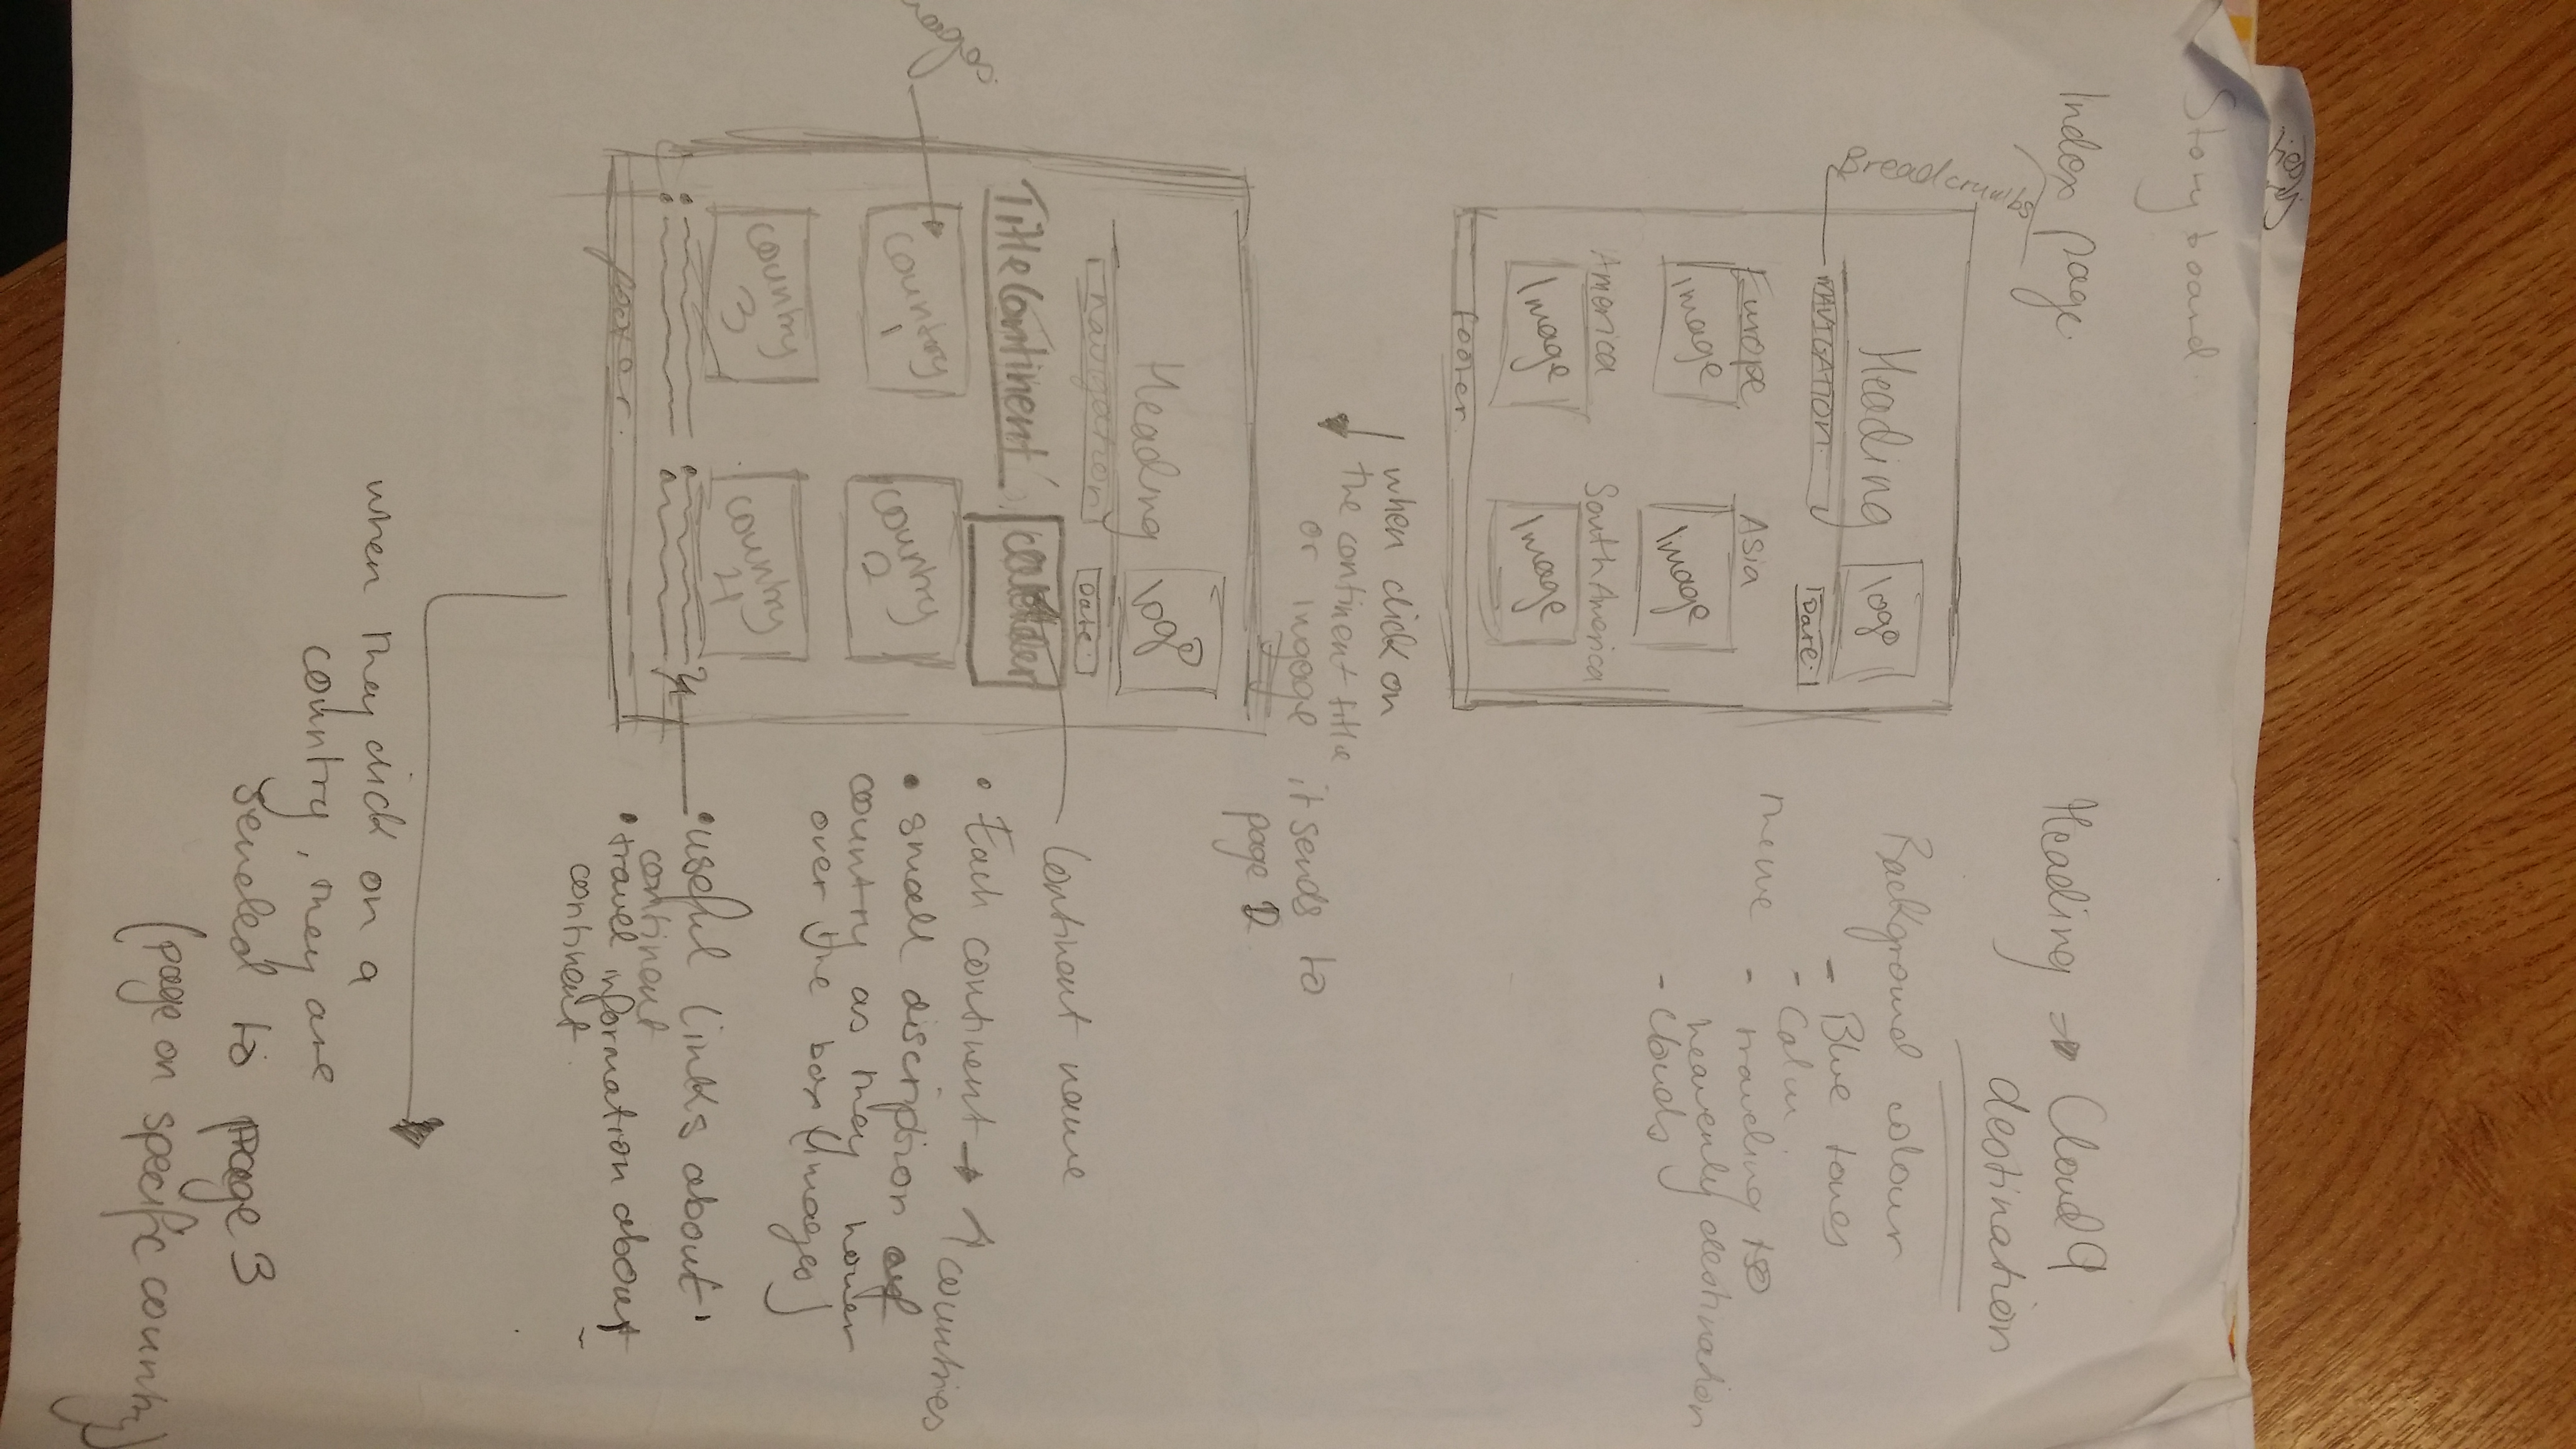 Storyboard
Index page.
Breadcrumbs
Heading
logo
NAVIGATION
Date
Europe
Asia
Image
Image
America
South America
Image
Image
footer
Heading → Cloud 9
destination
Background colour
- Blue tones
- Calm
- traveling to
heavenly destination
- Clouds
when click on
the continent title
or image it sends to
page 2
Heading
logo
navigation
Date
Title Continent
country 1
country 2
country 3
country 4
footer.
Continent name
• Each continent → 4 countries
• small discription of
country as they hover
over the box (images)
• useful links about
continent
• travel information about
continent.
when they click on a
country, they are
sended to page 3
(page on specific country)